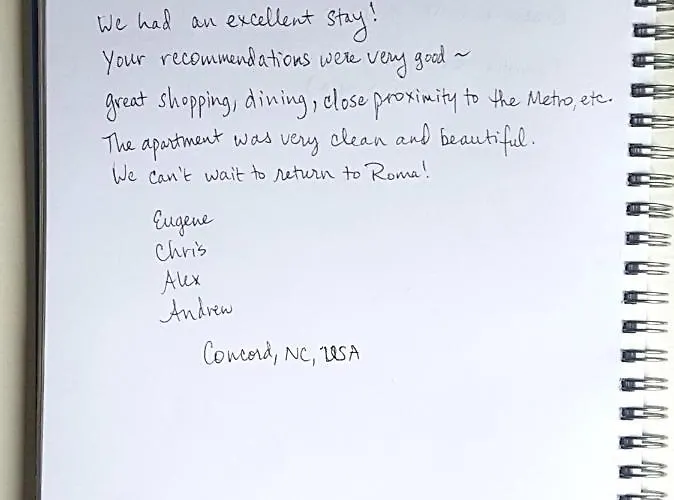 We had an excellent stay!
Your recommendations were very good ~
great shopping, dining, close proximity to the Metro, etc.
The apartment was very clean and beautiful.
We can't wait to return to Roma!
Eugene
Chris
Alex
Andrew
Concord, NC, USA